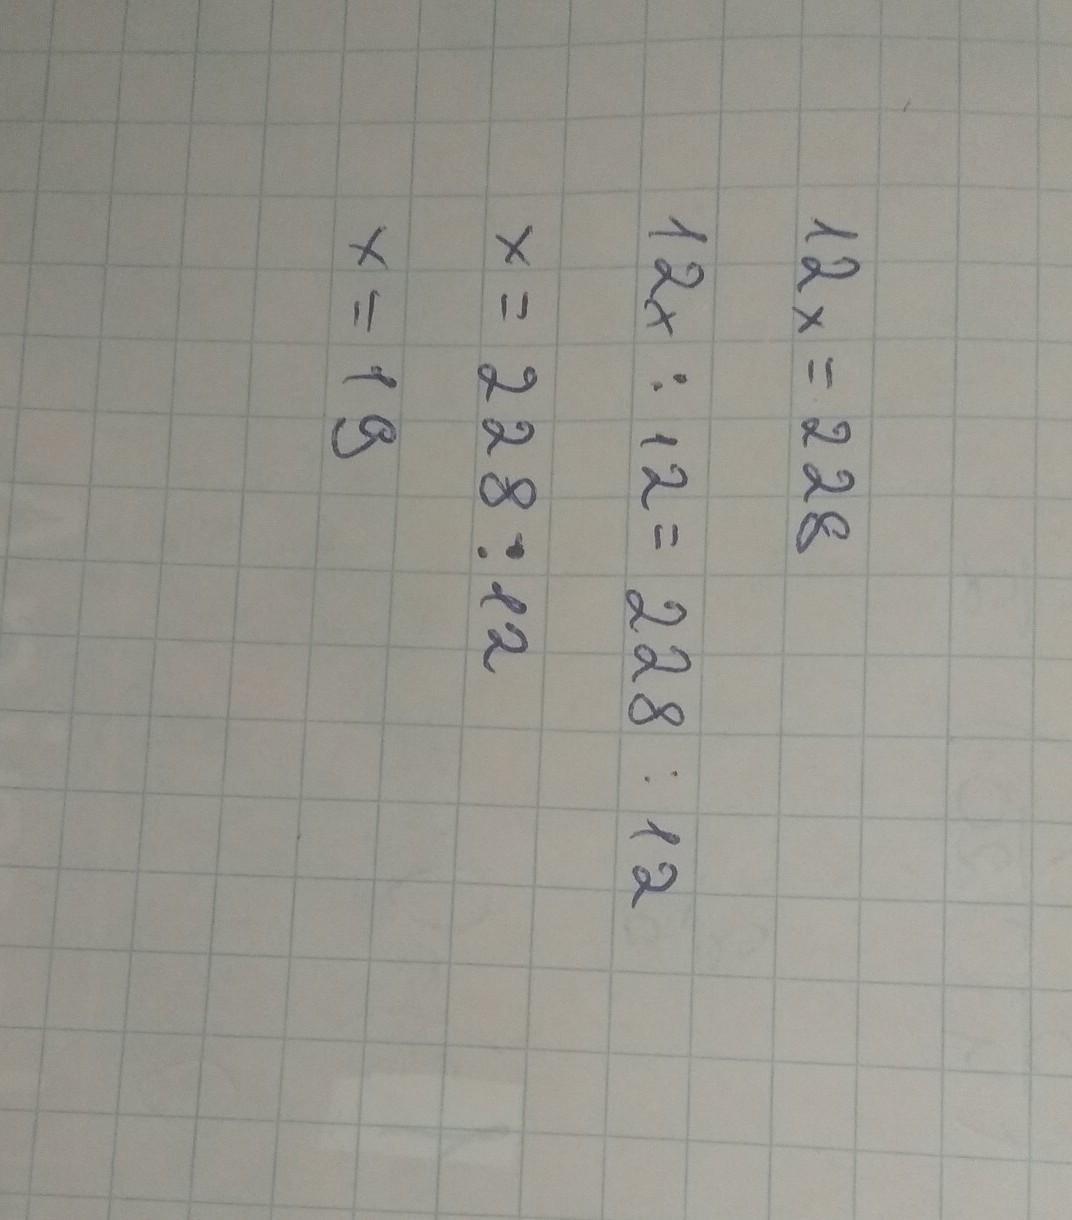 12x = 228
12x : 12 = 228 : 12
x = 228 : 12
x = 19